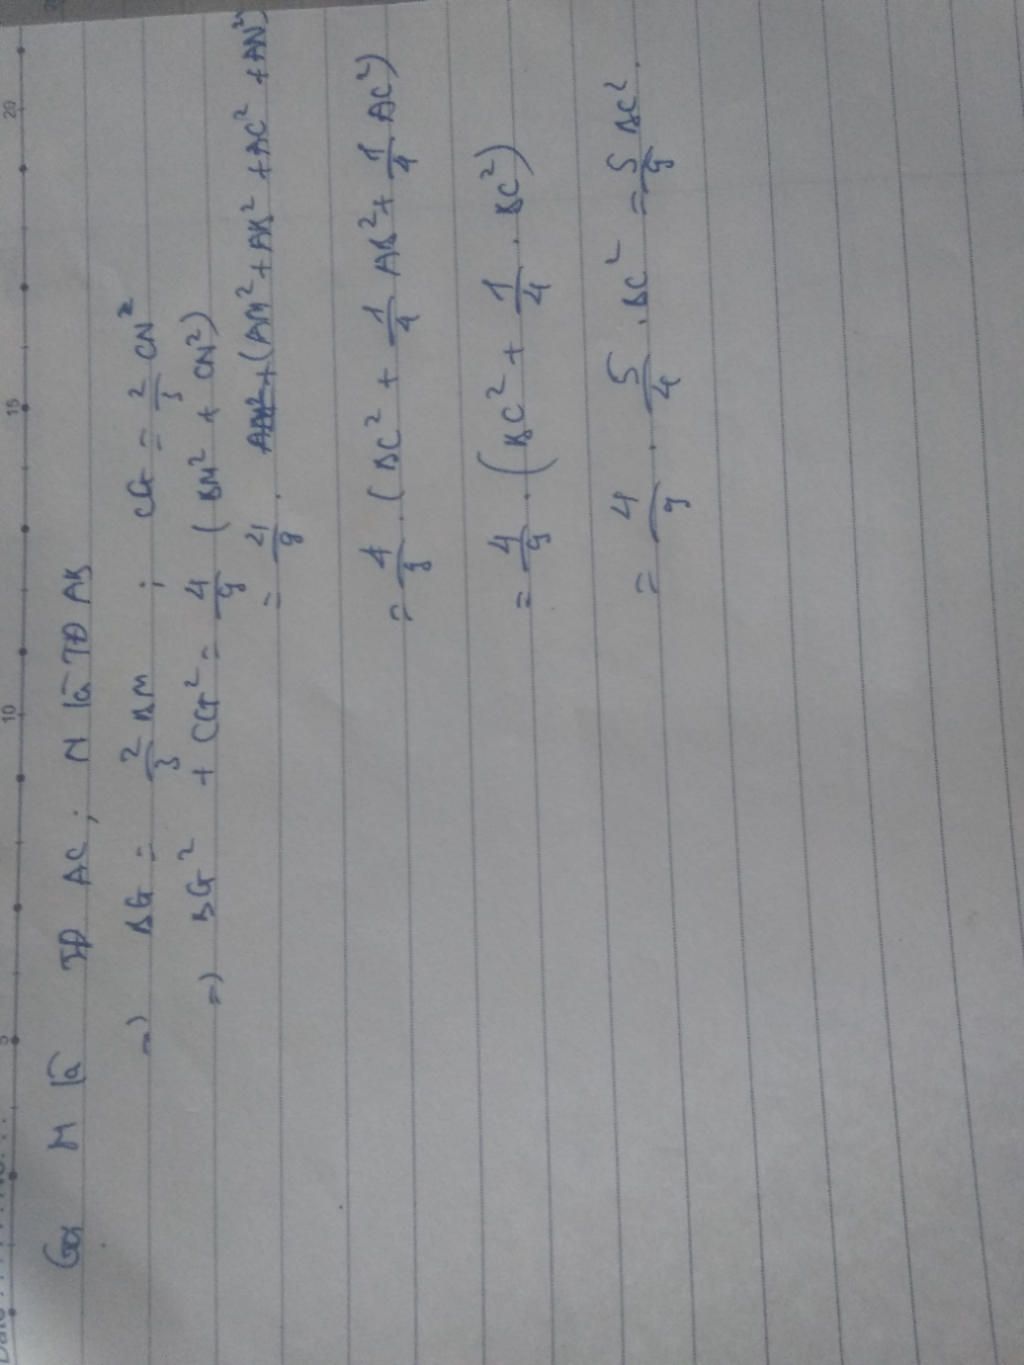 Gọi M là TĐ AC; N là TĐ AB
=) BG = 2/3 BM ; CG = 2/3 CN²
=) BG² + CG² = 4/9 (BM² + CN²)
= 4/9 . (AM² + AB² + AC² + AN²)
= 4/9 . (BC² + 1/4 AB² + 1/4 AC²)
= 4/9 . (BC² + 1/4 . BC²)
= 4/9 . 5/4 . BC² = 5/9 BC².
5 10 15 20